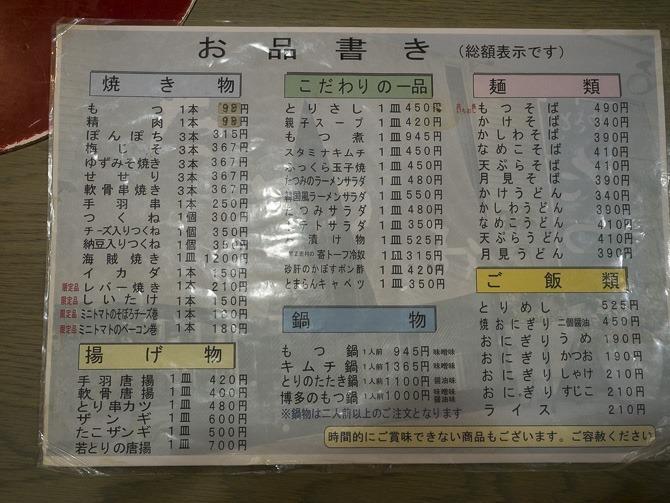 お品書き（総額表示です）
焼き物
もつ 1本 99円
精肉 1本 99円
ぼんぼち 3本 315円
梅じそ 3本 367円
ゆずみそ焼き 3本 367円
せせり 3本 367円
軟骨串焼き 3本 367円
手羽串 1本 250円
つくね 1個 300円
チーズ入りつくね 1個 350円
納豆入りつくね 1個 350円
海賊焼き 1皿 1200円
イカダ 1本 150円
限定品 レバー焼き 1本 210円
限定品 しいたけ 1本 150円
限定品 ミニトマトのそぼろチーズ巻 1本
限定品 ミニトマトのベーコン巻 1本 180円
揚げ物
手羽唐揚 1皿 420円
軟骨唐揚 1皿 400円
とり串カツ 1皿 480円
ザンギ 1皿 600円
たこザンギ 1皿 500円
若とりの唐揚 1皿 700円
こだわりの一品
とりさし 1皿 450円
親子スープ 1皿 420円
もつ煮 1皿 945円
スタミナキムチ 1皿 450円
ふっくら玉子焼 1皿 450円
たつみのラーメンサラダ 1皿 480円
韓国風ラーメンサラダ 1皿 550円
たつみサラダ 1皿 480円
ポテトサラダ 1皿 350円
漬け物 1皿 525円
寄トーフ冷奴 1皿 315円
砂肝のかぼすポン酢 1皿 420円
とまらんキャベツ 1皿 350円
鍋物
もつ鍋 1人前 945円 味噌味
キムチ鍋 1人前 1365円 味噌味
とりのたたき鍋 1人前 1100円 醤油味
博多のもつ鍋 1人前 1000円 味噌味 醤油味
※鍋物は二人前以上のご注文となります
麺類
もつそば 490円
かけそば 340円
かしわそば 390円
なめこそば 410円
天ぷらそば 410円
月見そば 390円
かけうどん 340円
かしわうどん 390円
なめこうどん 410円
天ぷらうどん 410円
月見うどん 390円
ご飯類
とりめし 525円
焼おにぎり 二個醤油 450円
おにぎり うめ 190円
おにぎり かつお 190円
おにぎり しゃけ 210円
おにぎり すじこ 210円
ライス 210円
時間的にご賞味できない商品もございます。ご容赦ください